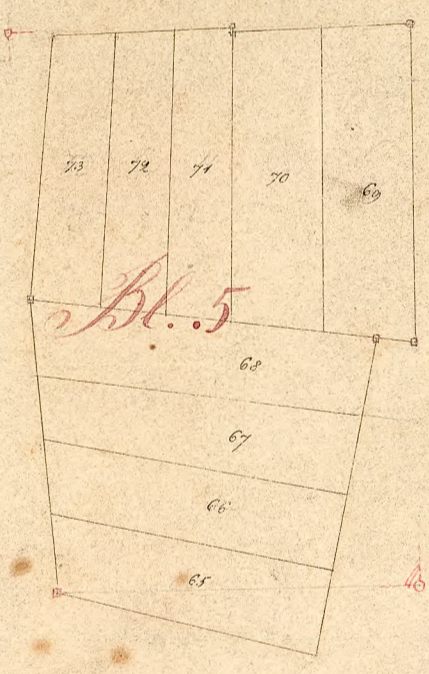 73 72 71 70 69
Bl. 5
68
67
66
65